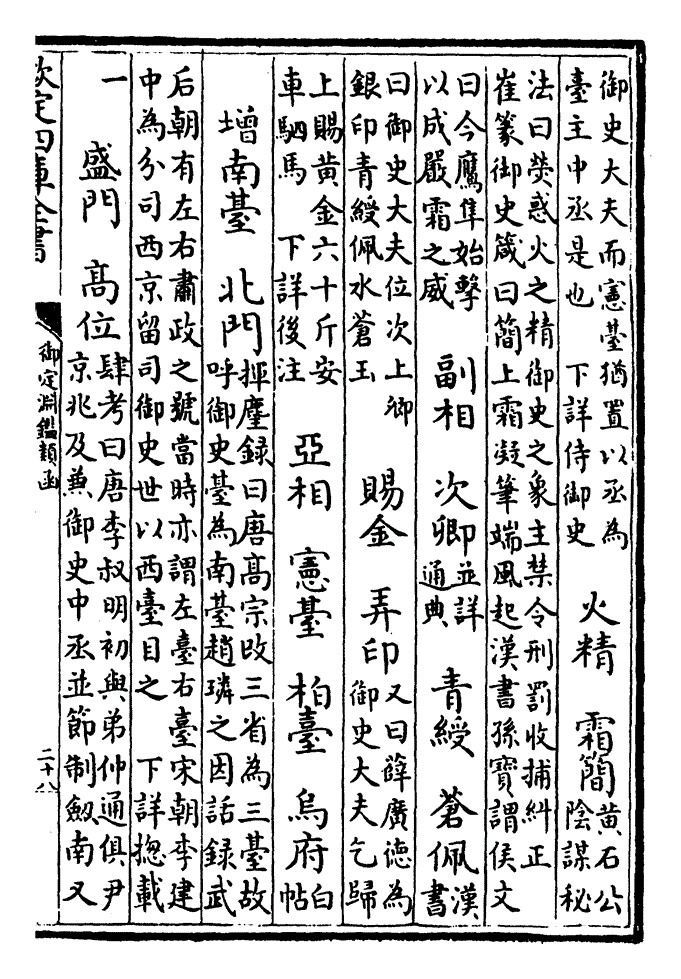 御史大夫而憲臺猶置以丞為
臺主中丞是也　下詳侍御史
火精　霜簡
黃石公
陰謀秘
法曰熒惑火之精御史之象主禁令刑罰收捕糾正
崔篆御史箴曰簡上霜凝筆端風起漢書孫寶謂侯文
曰今鷹隼始擊
以成嚴霜之威
副相　次卿
並詳
通典
青綬　蒼佩
漢
書
曰御史大夫位次上卿
銀印青綬佩水蒼玉
賜金　弄印
又曰薛廣德為
御史大夫乞歸
上賜黃金六十斤安
車駟馬　下詳後注
亞相　憲臺　柏臺　烏府
白
帖
增南臺　北門
揮麈録曰唐高宗改三省為三臺故
呼御史臺為南臺趙璘之因話録武
后朝有左右肅政之號當時亦謂左臺右臺宋朝李建
中為分司西京留司御史世以西臺目之　下詳揔載
一　盛門　高位
肆考曰唐李叔明初與弟仲通俱尹
京兆及兼御史中丞並節制劍南又
欽定四庫全書
御定淵鑑類函
二十八